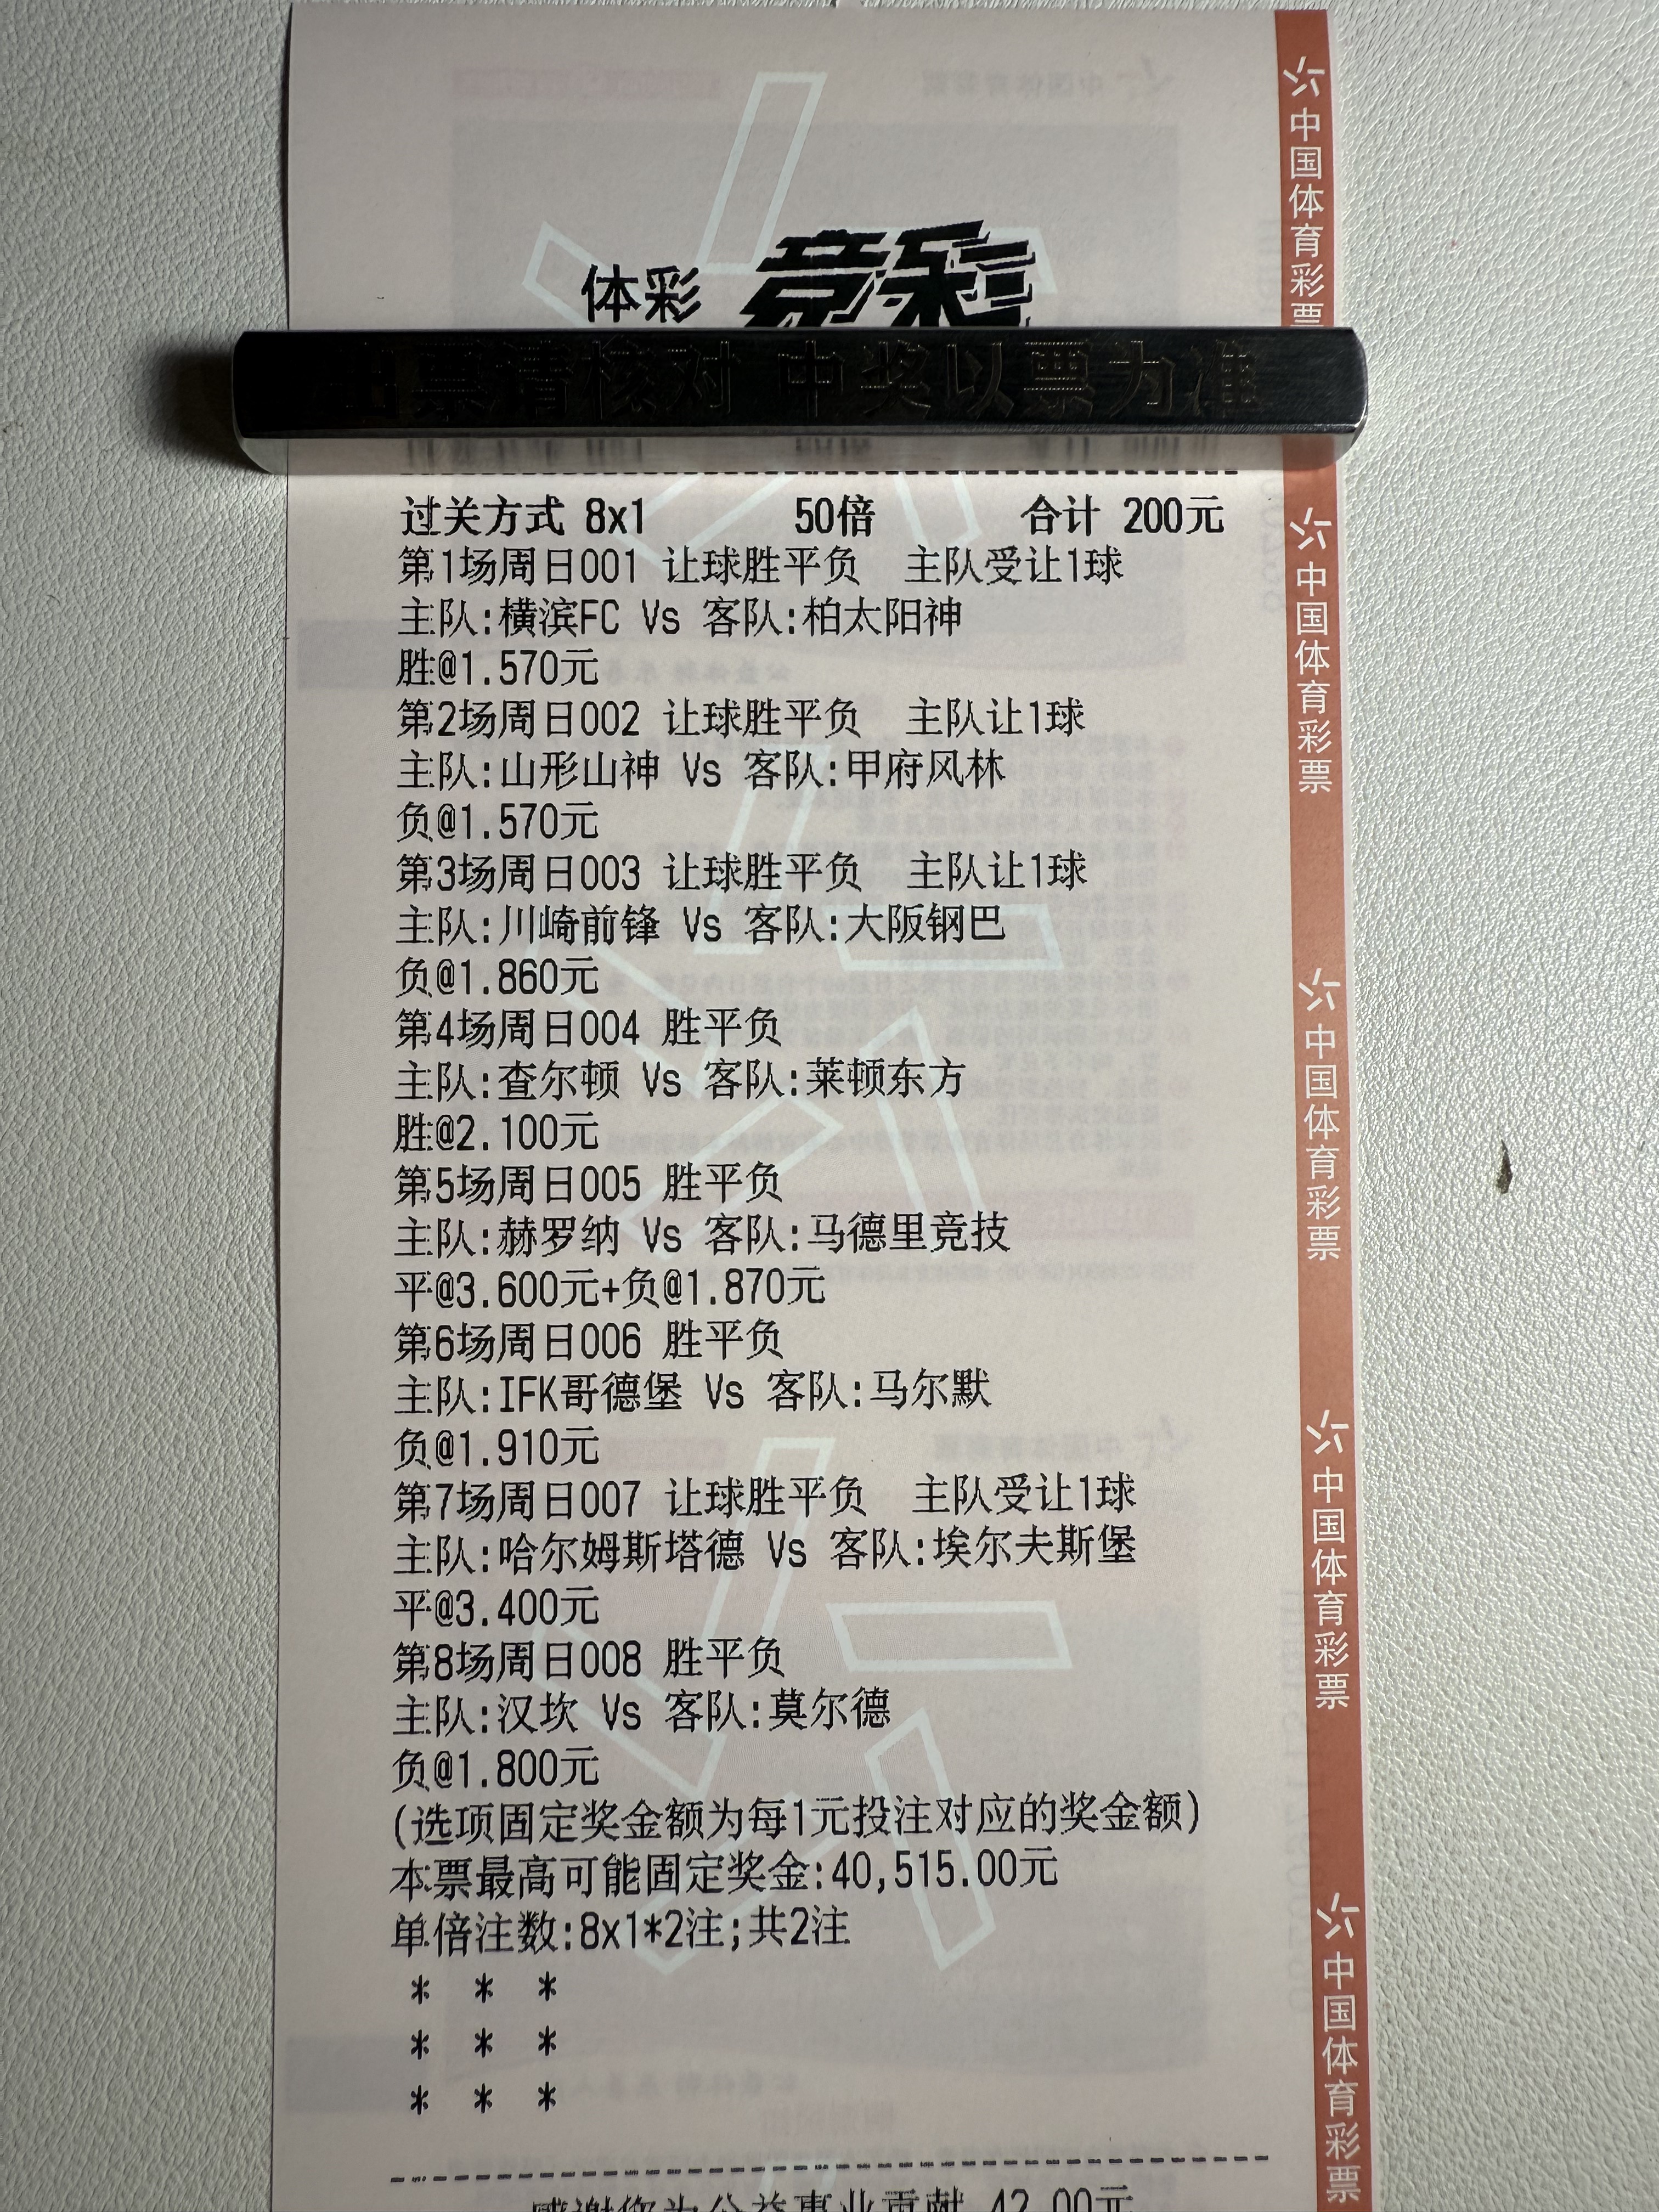 体彩 竞彩
出票请核对 中奖以票为准
过关方式 8x1 50倍 合计 200元
第1场周日001 让球胜平负 主队受让1球
主队:横滨FC Vs 客队:柏太阳神
胜@1.570元
第2场周日002 让球胜平负 主队让1球
主队:山形山神 Vs 客队:甲府风林
负@1.570元
第3场周日003 让球胜平负 主队让1球
主队:川崎前锋 Vs 客队:大阪钢巴
负@1.860元
第4场周日004 胜平负
主队:查尔顿 Vs 客队:莱顿东方
胜@2.100元
第5场周日005 胜平负
主队:赫罗纳 Vs 客队:马德里竞技
平@3.600元+负@1.870元
第6场周日006 胜平负
主队:IFK哥德堡 Vs 客队:马尔默
负@1.910元
第7场周日007 让球胜平负 主队受让1球
主队:哈尔姆斯塔德 Vs 客队:埃尔夫斯堡
平@3.400元
第8场周日008 胜平负
主队:汉坎 Vs 客队:莫尔德
负@1.800元
(选项固定奖金额为每1元投注对应的奖金额)
本票最高可能固定奖金:40,515.00元
单倍注数:8x1*2注;共2注
* * *
* * *
* * *
感谢您为公益事业贡献 42.00元
中国体育彩票
中国体育彩票
中国体育彩票
中国体育彩票
中国体育彩票